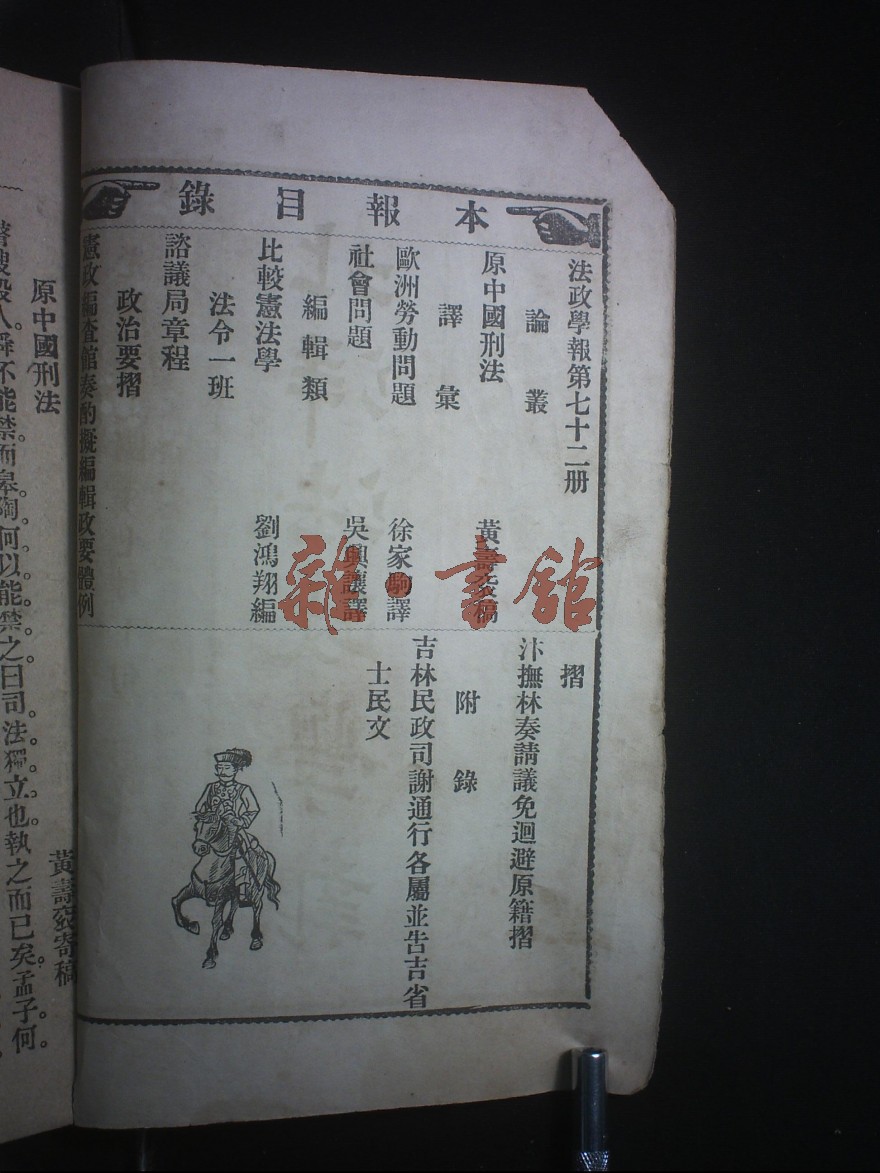 本報目錄
法政學報第七十二册
論叢
原中國刑法 黃壽 稿
譯彙
歐洲勞動問題 徐家駒譯
社會問題 吳興讓譯
編輯類
比較憲法學 劉鴻翔編
法令一班
諮議局章程
政治要摺
憲政編查館奏酌擬編輯政要體例
摺
汴撫林奏請議免迴避原籍摺
附錄
吉林民政司謝通行各屬並告吉省
士民文
雜·書館
原中國刑法
黃壽 寄稿
殺人舜不能禁而皋陶何以能禁之曰司法獨立也執之而已矣。孟子何。